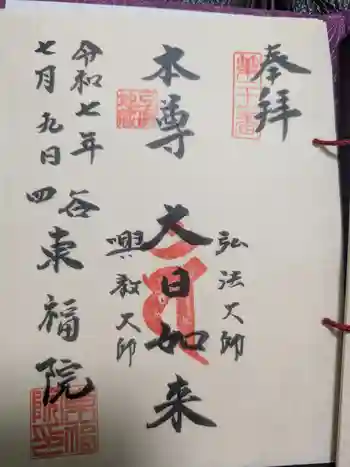 奉拝
本尊
弘法大師
大日如来
興教大師
令和七年
七月九日
四谷
東福院